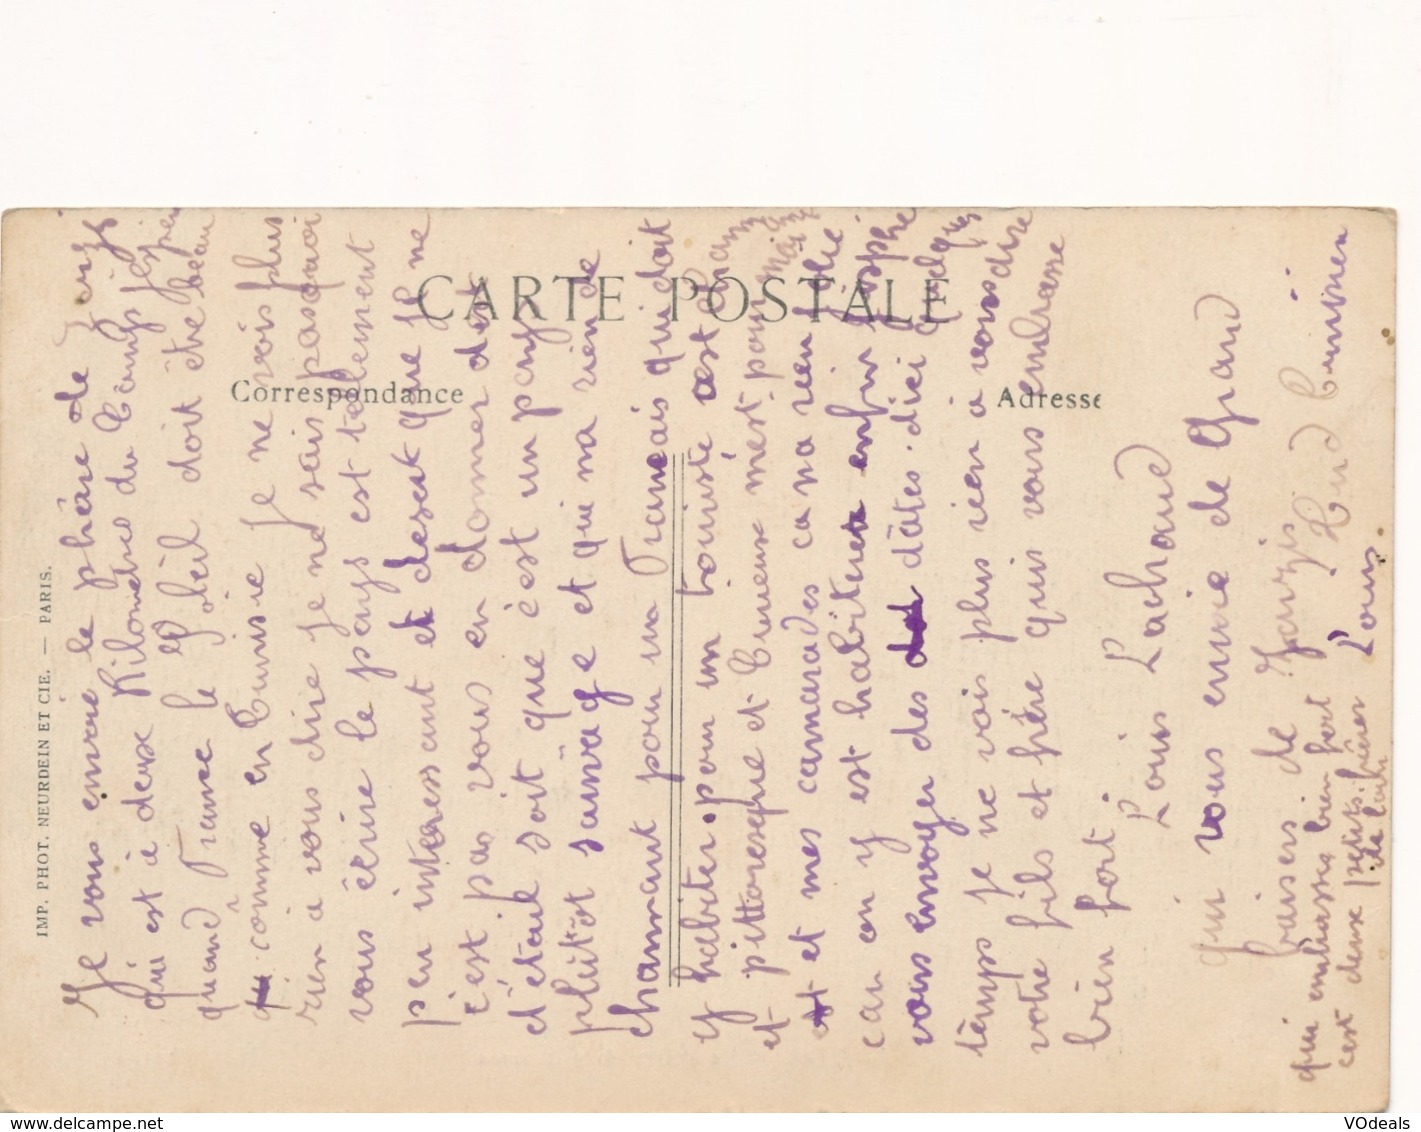 CARTE POSTALE
Correspondance
Adresse
IMP. PHOT. NEURDEIN ET CIE. — PARIS.
Je vous envoie le phâre de Zarzis
qui est à deux Kilomètres du Camp j'espère
quand France le Soleil doit être beau
comme en Tunisie Je ne vois plus
rien a vous dire Je ne sais pas quoi
vous écrire le pays est tellement
peu interessant et desert que Je ne
c'est pas vous en donner des
d'étail soit que c'est un pays
plutôt sauvage et qui n'a rien de
charmant pour un Français qui doit
y habiter. pour un touriste c'est charmant
et pittoresque et Curieux mais pour moi
et mes camarades ca na rien folie
can on y est habituer enfin j'espère
vous envoyer des dâtes d'ici quelques
temps je ne vois plus rien a vous dire
votre fils et frère qui vous embrasse
bien fort.
Louis Lachaud
qui vous envoie de Grand
baisers de Zarzis
Sud Tunisien
qui embrasse bien fort
c'est deux petits frères
Louis
VOdeals